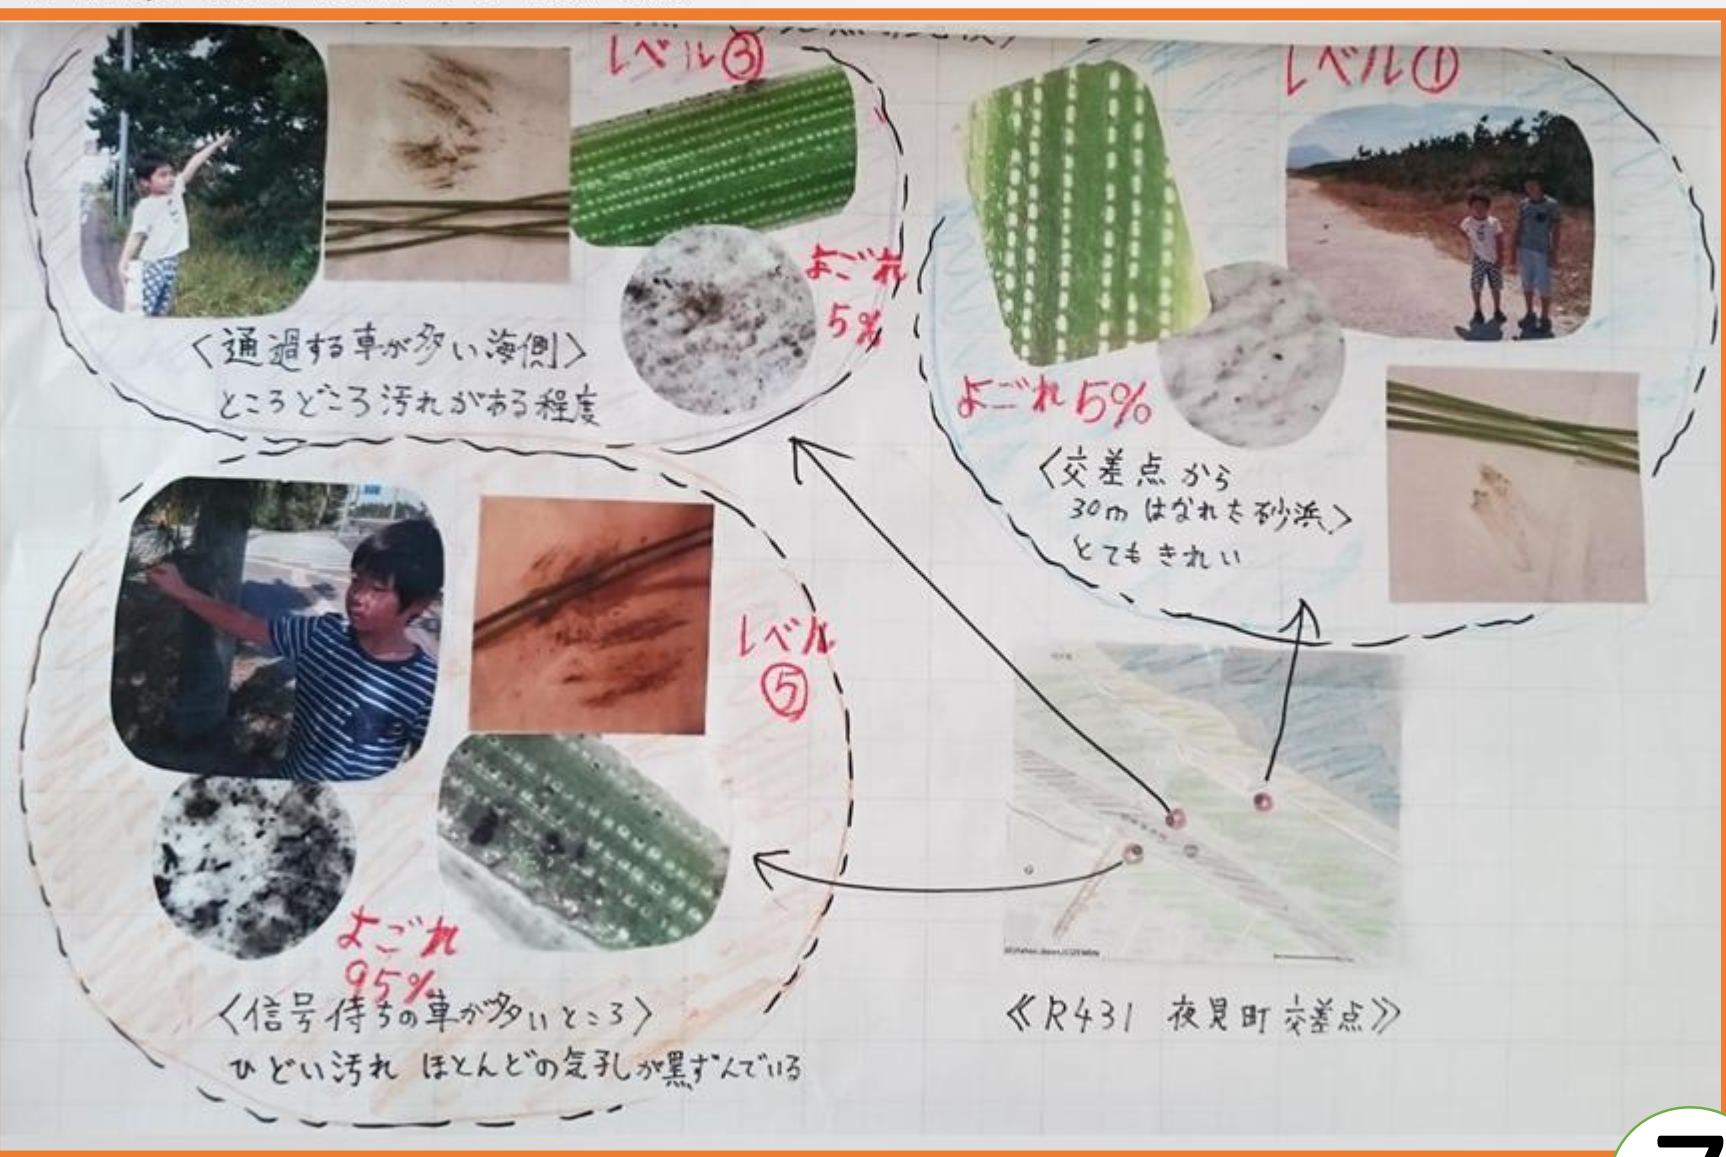 レベル③
よごれ
5%
<通過する車が多い海側>
ところどころ汚れがある程度
レベル①
よごれ5%
<交差点から
30mはなれた砂浜>
とてもきれい
レベル
⑤
よごれ
95%
<信号待ちの車が多いところ>
ひどい汚れ ほとんどの気孔が黒ずんでいる
≪R431 夜見町交差点≫
7